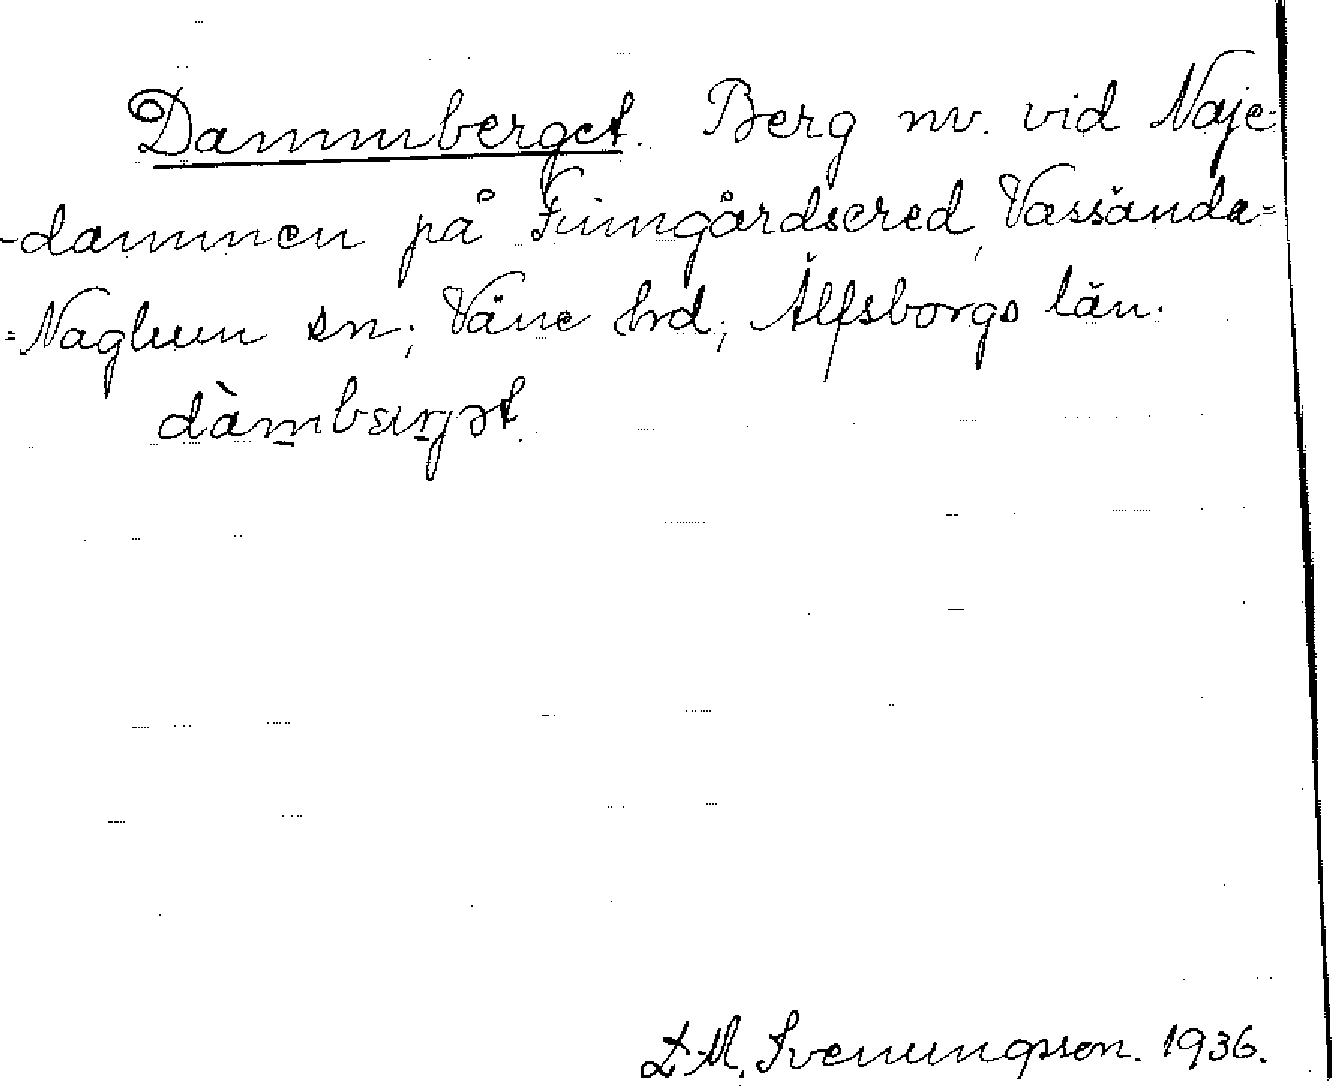 Dammberget. Berg nv. vid Naje-
-dammen på Fimgårdsered, Vassända-
-Naglum sn; Väne hrd; Älfsborgs län.
dàmbærjət.
D.M. Svenungsson. 1936.